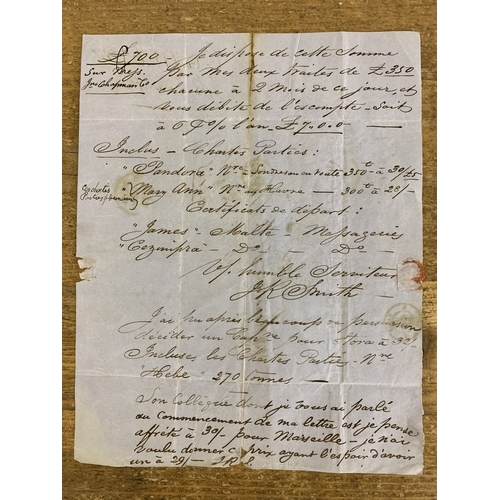 £700 - Je dispose de cette somme
Sur Mess.
Jno Chapman & Co
par mes deux traites de £350
chacune à 2 mois de ce jour, et
vous débite de l'escompte - soit
à 6 % l'an £7.0.0
Inclus - Chartes Parties:
"Pandora" Nre à Londres en route 350t à 30/ £5
"Mary Ann" Nre au Havre - 300t à 28/-
Certificats de départ:
"James" - Malte - Messagerie
- Do - Do -
Vf. humble Serviteur
J R Smith
J'ai pu après beaucoup de persuasion
décider un Capne pour Stora à 30/-
Incluses les Chartes Parties - Nre
"Hebe" 270 tonnes
Son collègue dont je vous ai parlé
au commencement de ma lettre est je pense
affrété à 30/- pour Marseille - je n'ai
voulu donner ce prix ayant l'espoir d'avoir
un à 29/- J.R.S.